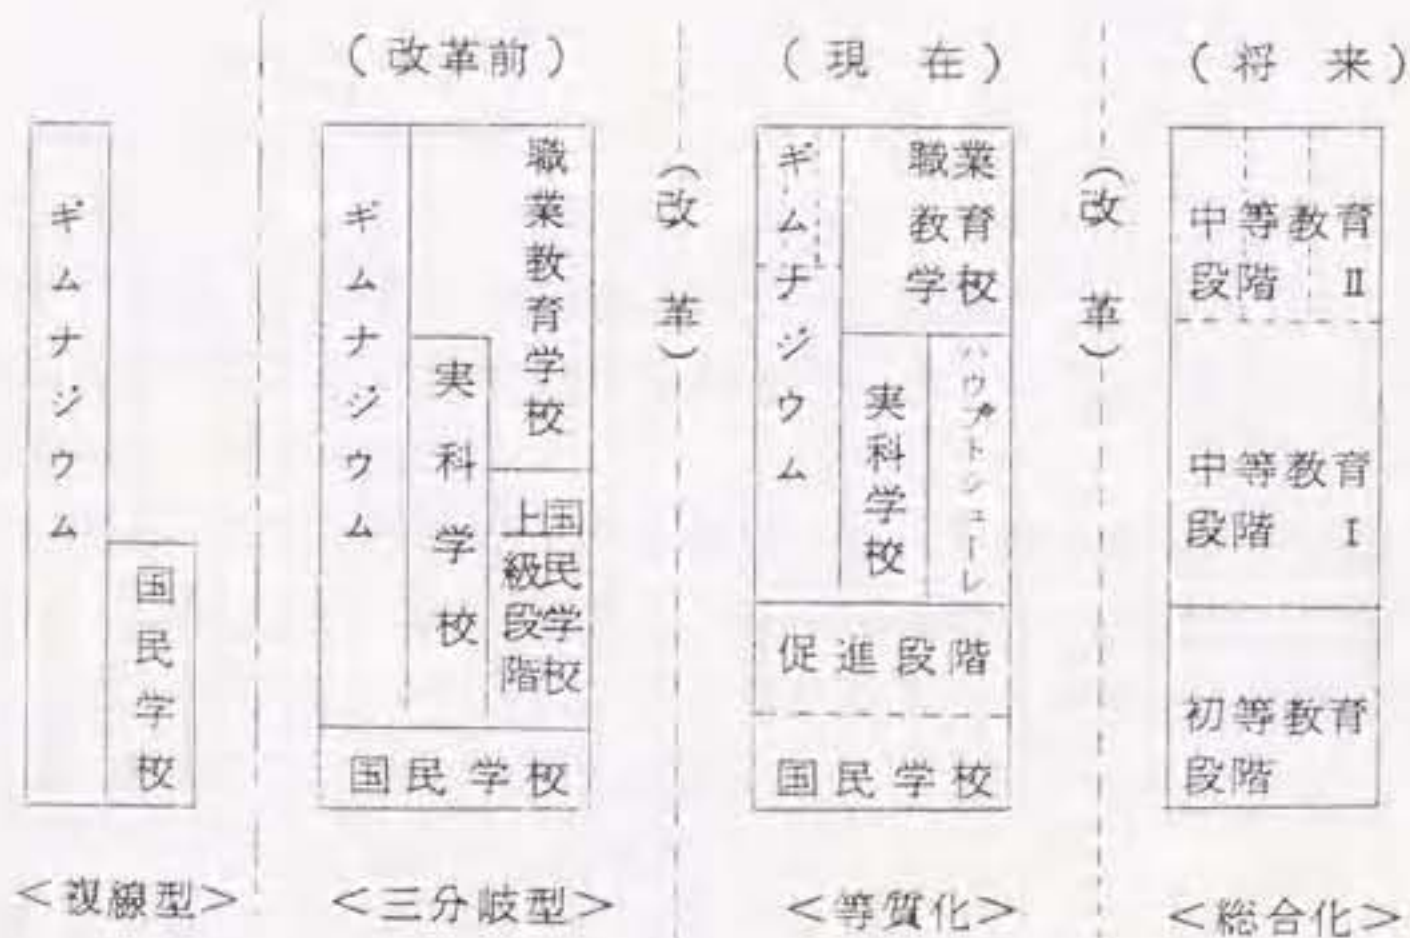 ギムナジウム
国民学校
<複線型>
(改革前)
ギムナジウム
実科学校
職業教育学校
国民学校
上級段階
国民学校
<三分岐型>
(改革)
(現在)
ギムナジウム
職業
教育
学校
実科学校
ハウプトシューレ
促進段階
国民学校
<等質化>
(改革)
(将来)
中等教育
段階 II
中等教育
段階 I
初等教育
段階
<総合化>